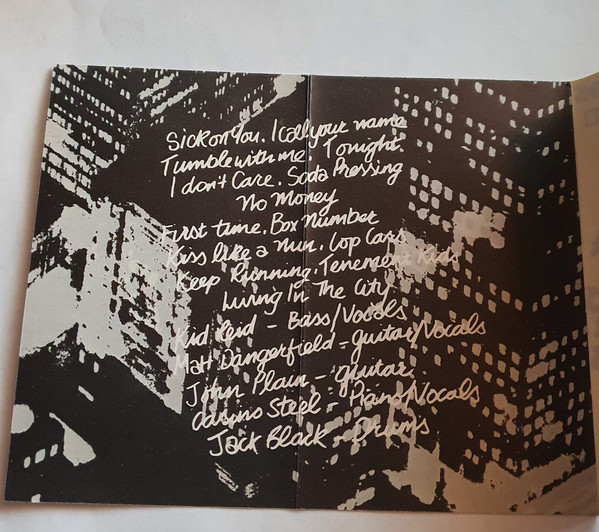 Sick on You. I call your name
Tumble with me. Tonight.
I don't Care. Soda Pressing
No Money
First time. Box Number
Kiss like a Nun. Cop Cars
Keep Running. Tenement Kids
Living In The City
Kid Reid - Bass/Vocals
Matt Dangerfield - guitar/Vocals
John Plain - guitar
Casino Steel - Piano/Vocals
Jack Black - Drums